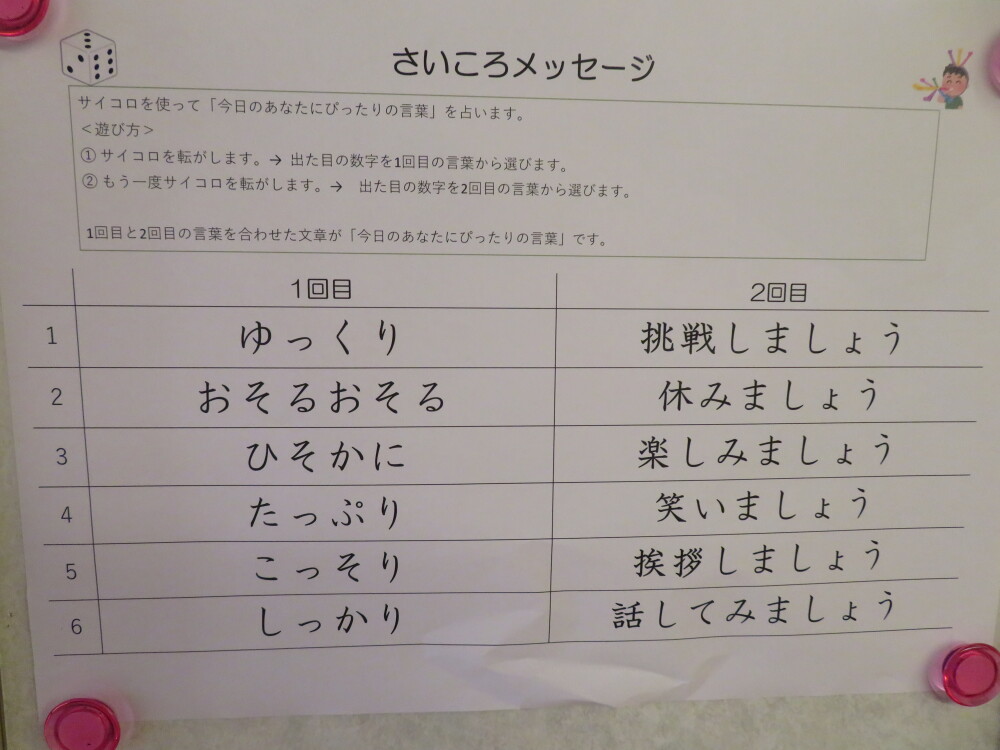 さいころメッセージ
サイコロを使って「今日のあなたにぴったりの言葉」を占います。
＜遊び方＞
① サイコロを転がします。→ 出た目の数字を1回目の言葉から選びます。
② もう一度サイコロを転がします。→ 出た目の数字を2回目の言葉から選びます。
1回目と2回目の言葉を合わせた文章が「今日のあなたにぴったりの言葉」です。
1回目 2回目
1 ゆっくり 挑戦しましょう
2 おそるおそる 休みましょう
3 ひそかに 楽しみましょう
4 たっぷり 笑いましょう
5 こっそり 挨拶しましょう
6 しっかり 話してみましょう